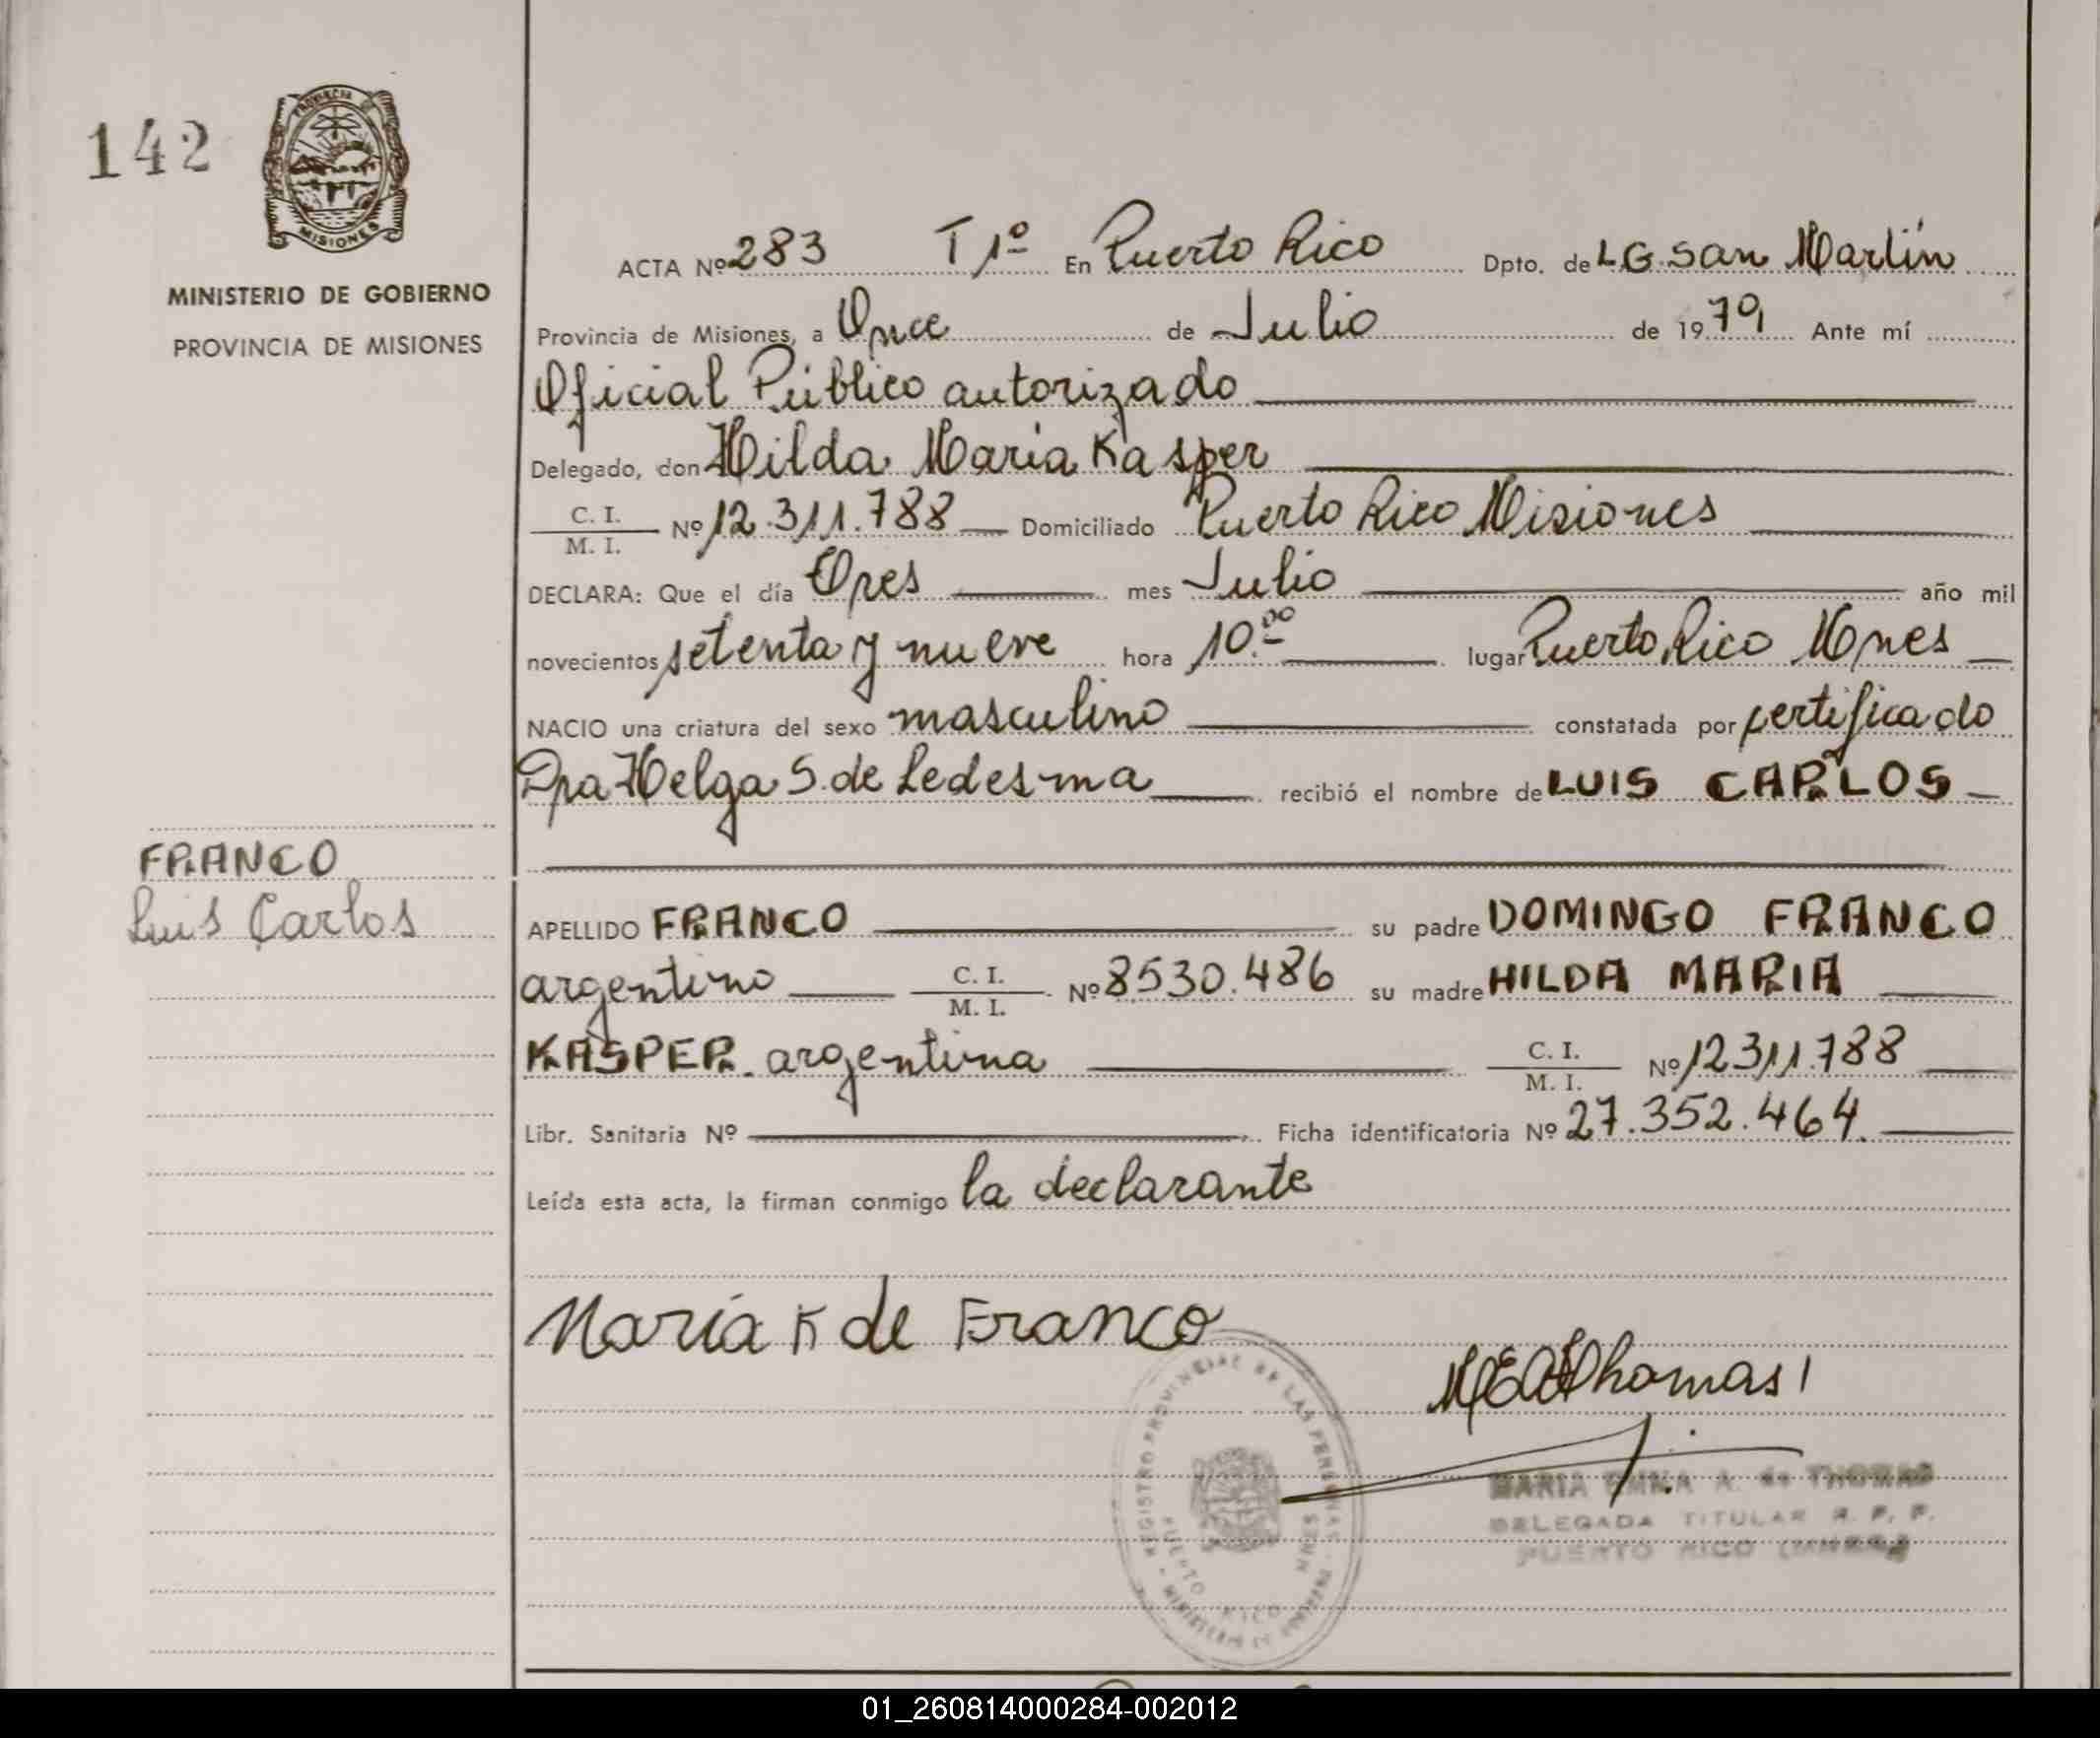 142
PROVINCIA DE
MISIONES
MINISTERIO DE GOBIERNO
PROVINCIA DE MISIONES
FRANCO
Luis Carlos
ACTA Nº 283 T 1º En Puerto Rico Dpto. de L.G. San Martín
Provincia de Misiones, a Once de Julio de 1979 Ante mí
Oficial Público autorizado
Delegado, don Hilda María Kasper
C. I. / M. I. Nº 12.311.788 Domiciliado Puerto Rico Misiones
DECLARA: Que el día Tres mes Julio año mil
novecientos setenta y nueve hora 10.00 lugar Puerto Rico Mnes
NACIO una criatura del sexo masculino constatada por certificado
Dra Helga S. de Ledesma recibió el nombre de LUIS CARLOS
APELLIDO FRANCO su padre DOMINGO FRANCO
argentino C. I. / M. I. Nº 8530.486 su madre HILDA MARIA
KASPER argentina C. I. / M. I. Nº 12311.788
Libr. Sanitaria Nº Ficha identificatoria Nº 27.352.464.
Leída esta acta, la firman conmigo la declarante
María K de Franco
MEAThomas
REGISTRO PROVINCIAL DE LAS PERSONAS
PUERTO RICO MNES
MARIA EMMA A. de THOMAS
DELEGADA TITULAR R. P. P.
PUERTO RICO (MNES.)
01_260814000284-002012